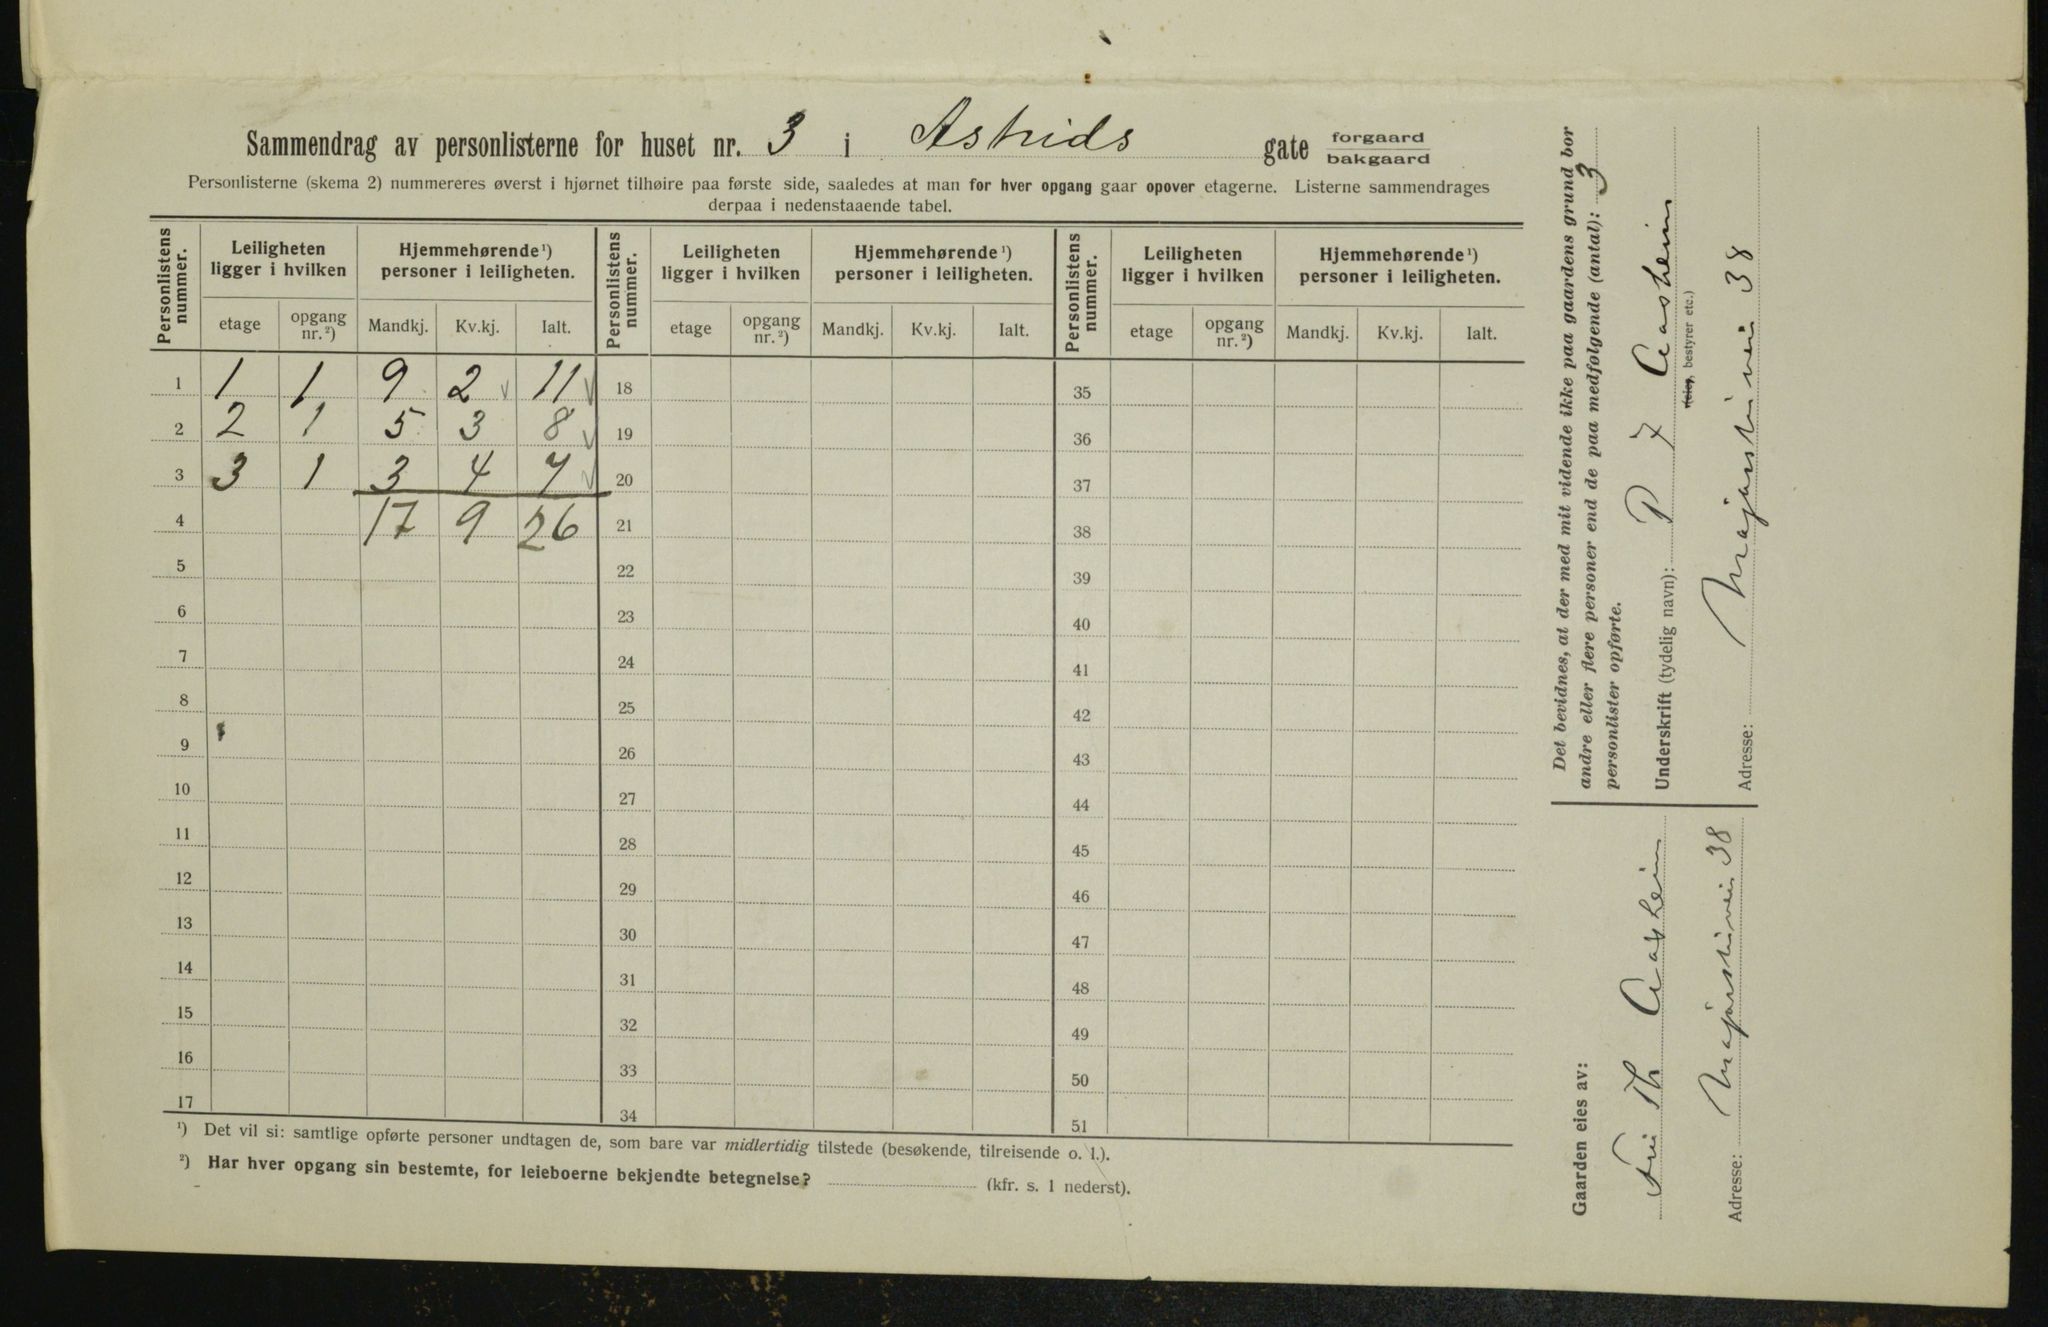 Sammendrag av personlisterne for huset nr. 3 i Astrids gate forgaard bakgaard
Personlisterne (skema 2) nummereres øverst i hjørnet tilhøire paa første side, saaledes at man for hver opgang gaar opover etagerne. Listerne sammendrages
derpaa i nedenstaaende tabel.
Personlistens nummer. Leiligheten ligger i hvilken Hjemmehørende ¹) personer i leiligheten. Personlistens nummer. Leiligheten ligger i hvilken Hjemmehørende ¹) personer i leiligheten. Personlistens nummer. Leiligheten ligger i hvilken Hjemmehørende ¹) personer i leiligheten.
etage opgang nr. ²) Mandkj. Kv.kj. Ialt. etage opgang nr. ²) Mandkj. Kv.kj. Ialt. etage opgang nr. ²) Mandkj. Kv.kj. Ialt.
1 1 1 9 2 11 18 35
2 2 1 5 3 8 19 36
3 3 1 3 4 7 20 37
4 17 9 26 21 38
5 22 39
6 23 40
7 24 41
8 25 42
9 26 43
10 27 44
11 28 45
12 29 46
13 30 47
14 31 48
15 32 49
16 33 50
17 34 51
¹) Det vil si: samtlige opførte personer undtagen de, som bare var midlertidig tilstede (besøkende, tilreisende o. l.).
²) Har hver opgang sin bestemte, for leieboerne bekjendte betegnelse? (kfr. s. 1 nederst).
Det bevidnes, at der med mit vidende ikke paa gaardens grund bor
andre eller flere personer end de paa medfølgende (antal): 3
personlister opførte.
Underskrift (tydelig navn): P Aasheim
(eier, bestyrer etc.)
Adresse: Majorstuvei 38
Gaarden eies av:
Th Aasheim
Adresse: Majorstuvei 38